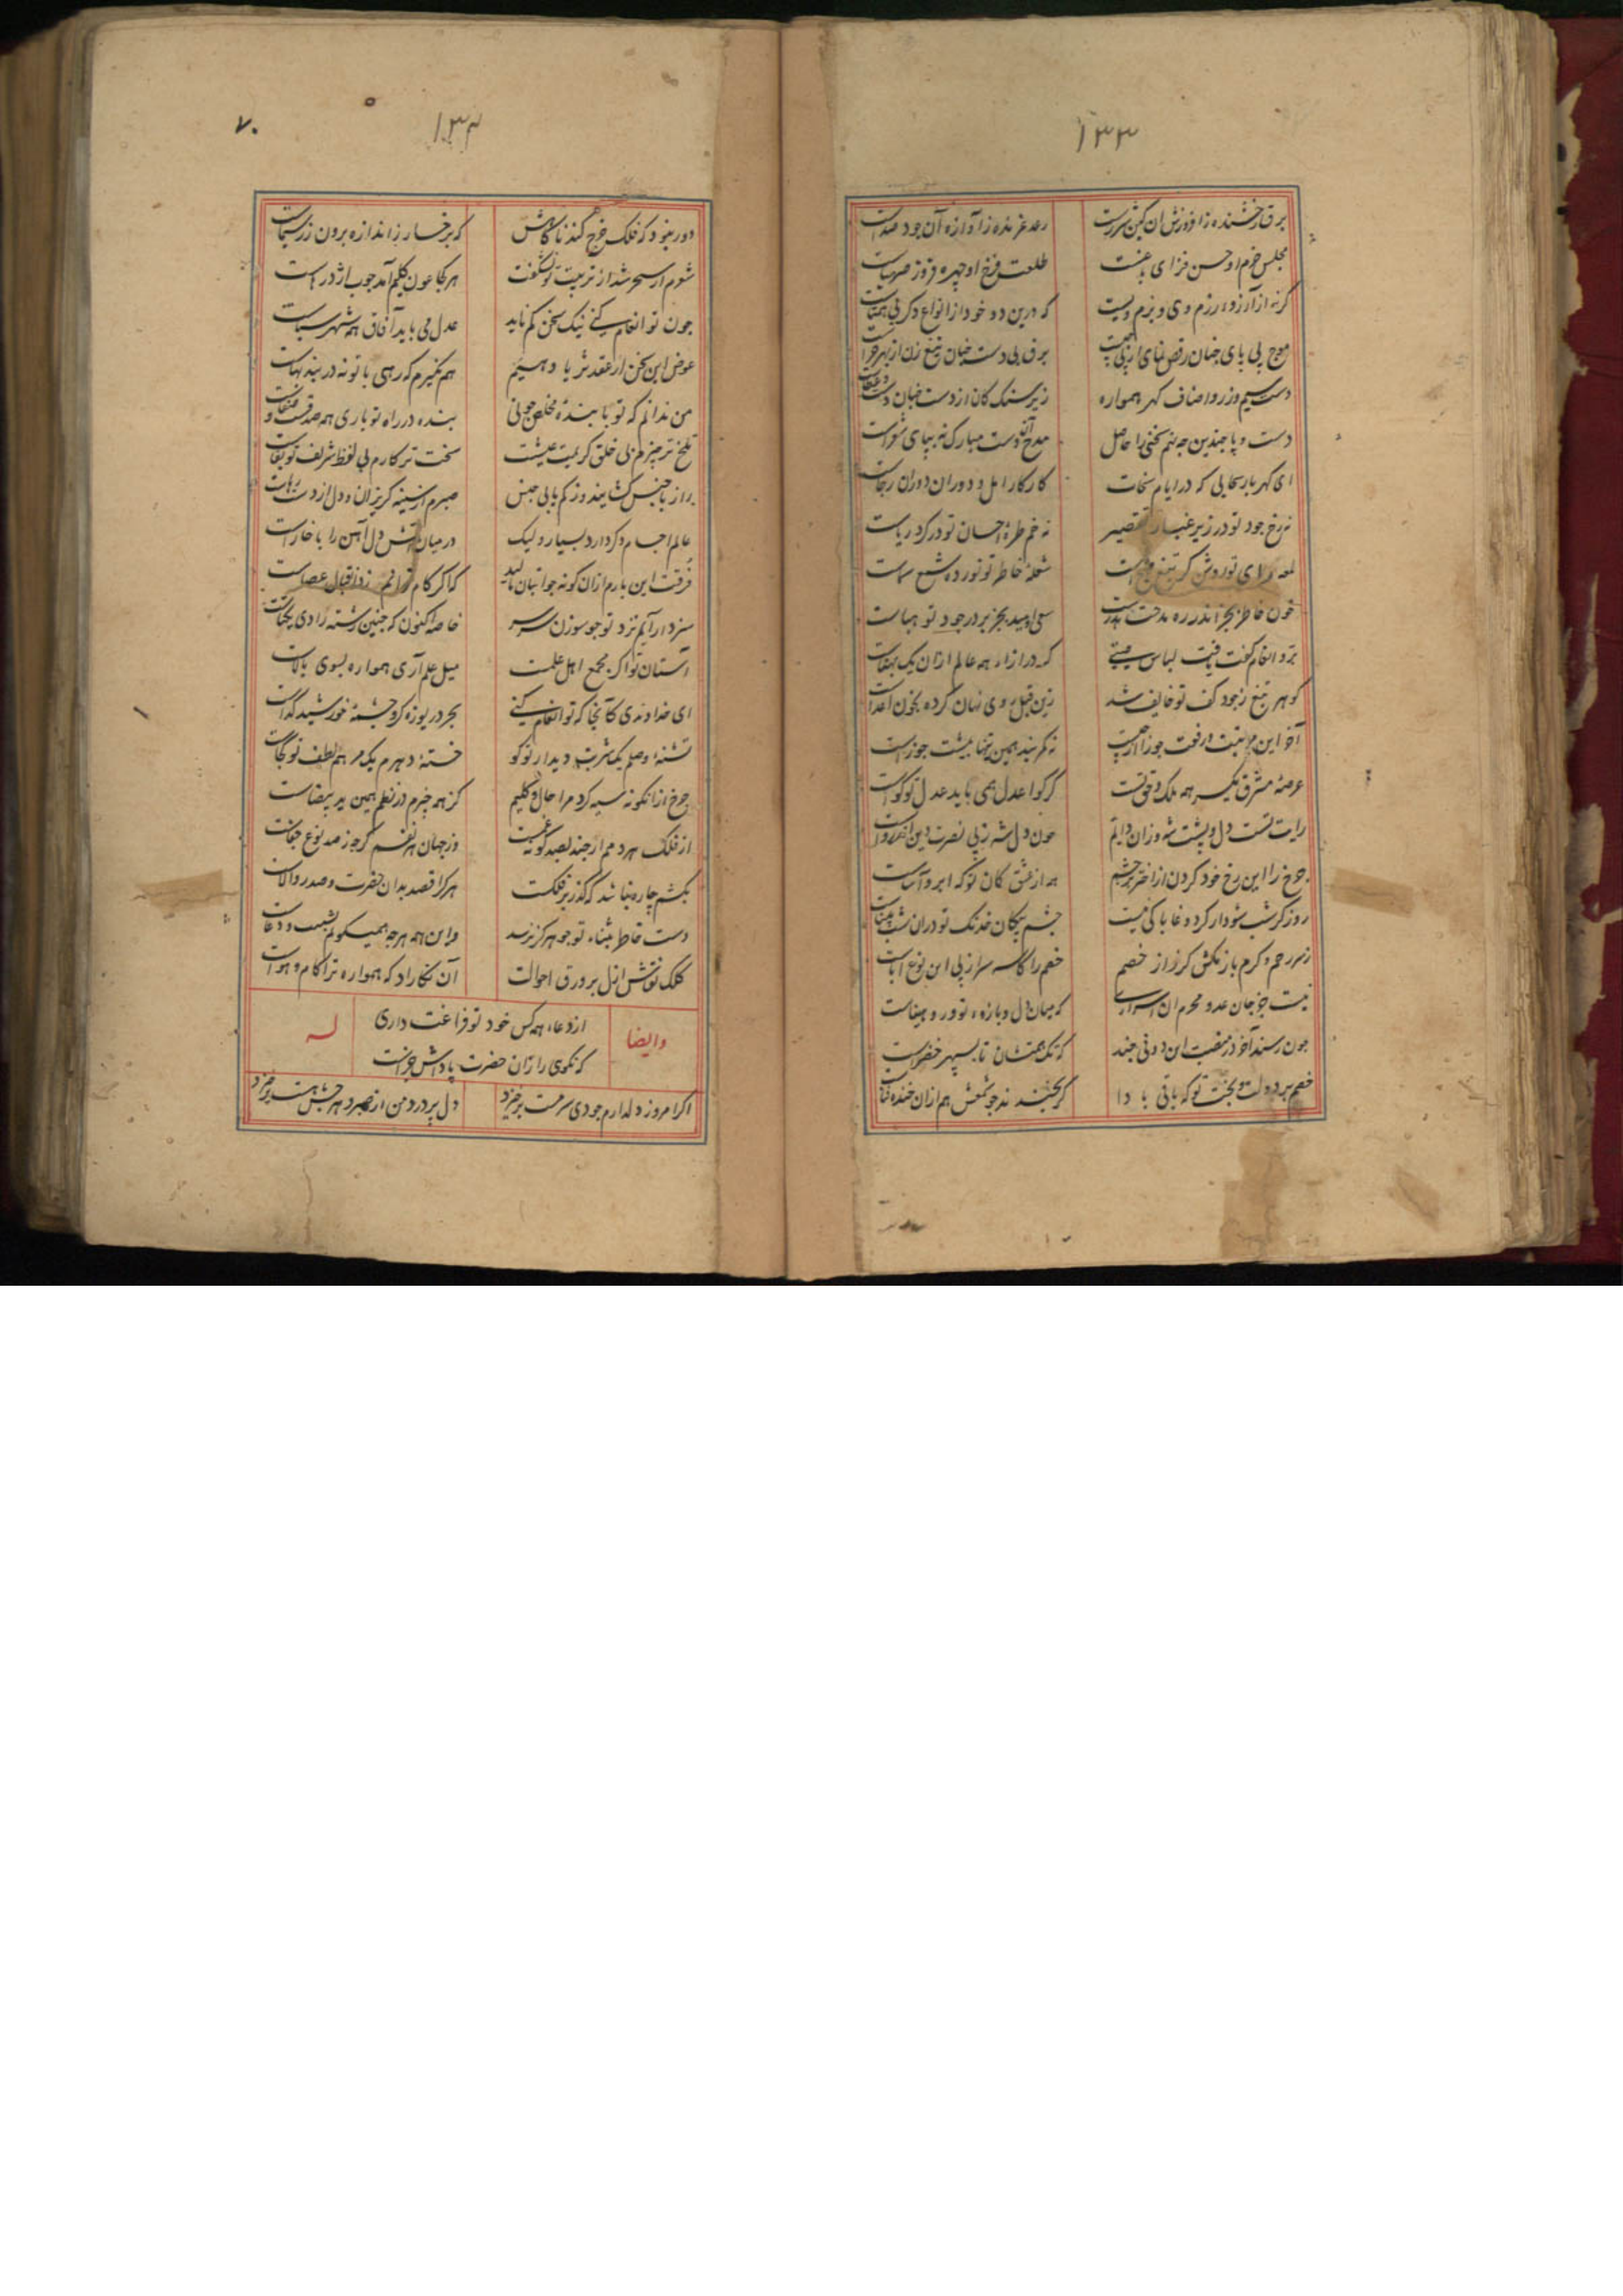 ۱۳۳
برق رخشنده ز افروزش آن
رعد غرنده ز آوازه آن جود صداست
مجلس خرم او حسن فزای
طلعت فرخ او چهره فروز
گرنه از آرزوء رزم وی و بزم ویست
که درین دو خود از انواع دکر بی همتاست
موج بی پای چنان رقص نمای از پی چیست
برق بی دست چنان تیغ زن از بهر چراست
دست سیم و زر و اضاف کهر همواره
زیر سنک کان از دست چنان
دست و پا چندین چه نهم سخنی را حاصل
مدح آن دست مبارک نه بپای شعراست
ای کهربار سحابی که در ایام سخات
کار کار امل و دوران دوران رجاست
نه رخ جود تو در زیر غبار تقصیر
نه خم طره احسان تو در کرد ریاست
لمعه رای تو روشن کر تیغ
شعله خاطر تو نور ده شمع سماست
چون خاطر بجز اندر ره مدحت هدرست
سعی امید بجز بر در جود تو هباست
برد انعام
که درازاء همه عالم ازان یک
کوهر تیغ ز جود کف تو خایف شد
زین قبل روی نهان کرده بخون اعداست
آخر این مرتبت و رفعت جوزا از چیست
نه کمر بند همین تنها بیشت جوزاست
عرصه مشرق یکسر همه ملک
کر کوا عدل همی باید عدل تو کواست
رایت تست دل و پشت شه و زان دایم
چون دل شه ز پی نصرت دین
چرخ را این رخ خود کردن از اختر پر چشم
همه از عشق کان تو که ابرو آساست
روز کر شب شود از کرد وغا باکی نیست
چشم پیکان خدنک تو دران شب بیناست
زسر رحم و کرم باز مکش کرز از خصم
خصم را کاسه سر از پی این نوع
نیست جز جان عدو محرم آن اسراری
که میان دل و بازوء تو و روز وغاست
چون رسند آخر در منصبت این دونی چند
که تک همتشان تا بسپهر خضراست
خصم بر دولت و بخت تو که باقی بادا
کر بخندند چو شمعش هم ازان خنده فناست
۱۳۴
۷۰
دور نبود که فلک خرج کند ناکاهش
که بر خسار ز اندازه برون زر سیماست
شوم ار سحر شد از تربیت تو نه شکفت
هر کجا عون کلیم آمد چوب اژدرهاست
چون تو انعام کنی نیک سخن کم ناید
عدل می باید آفاق همه شهر سباست
عوض این سخن ار عقد ثریا دهیم
هم نکیرم که رهی با تو نه در بند بهاست
من ندانم که تو با بنده مخلص چونی
بنده در راه تو باری همه صدقست و صفاست
تلخ تر چیزم بی خلق کریمت عیشت
سخت تر کارم بی لفظ شریف تو بقاست
راز با جنس کشایند و ز کم یابی جنس
صبرم از سینه کریزان و دل از دست رهاست
عالم اجسام دکر دارد بسیار و لیک
در میان آتش دل آهن را با خاراست
فرقت این بارم ازان کونه جوانبان مالید
کاکر کام توانم زد از اقبال عصاست
سزد ار آیم نزد تو چو سوزن بر سر
خاصه اکنون که چنین رشته زادی یکتاست
آستان تو اکر مجمع اهل علمست
میل علم آری همواره بسوی بالاست
ای خداوندی کانجا که تو انعام کنی
بحر دریوزه کر و چشمه خورشید کداست
تشنه وصلم یک شربت دیدار تو کو
خسته دهرم یک مرهم لطف تو کجاست
چرخ ازانکونه سیه کرد مرا حال کلیم
کز همه چیزم در نظم همین ید بیضاست
از فلک هر دمم ار چند بصد کونه
وز جهان هر نفسم کرچه ز صد نوع جفاست
بکشم چاره نباشد که کذر بر فلکست
هر کرا قصد بدان حضرت و صدر والاست
دست خاطر بثناء تو چو هرکز نرسد
و این همه هرچه همیکویم تشبیب و دعاست
کلک نقاش ازل بر ورق احوالت
آن نکاراد که همواره ترا کام و هواست
از دعاء همه کس خود تو فراغت داری
که نکویی را زان حضرت پاداش جزاست
وایضا
له
اکر امروز دلدارم چو دی سرمست برخیزد
دل پر درد من از صبر و هر چش هست برخیزد